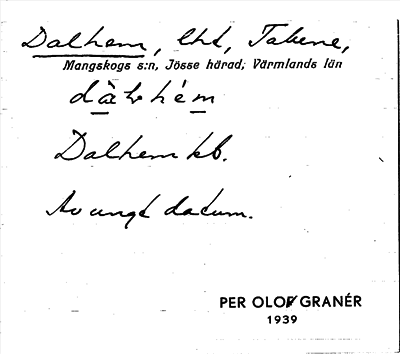 Dalhem, lhd, Takene,
Mangskogs s:n, Jösse härad, Värmlands län
Dalhem kb.
Av ungt datum.
PER OLOF GRANÉR
1939